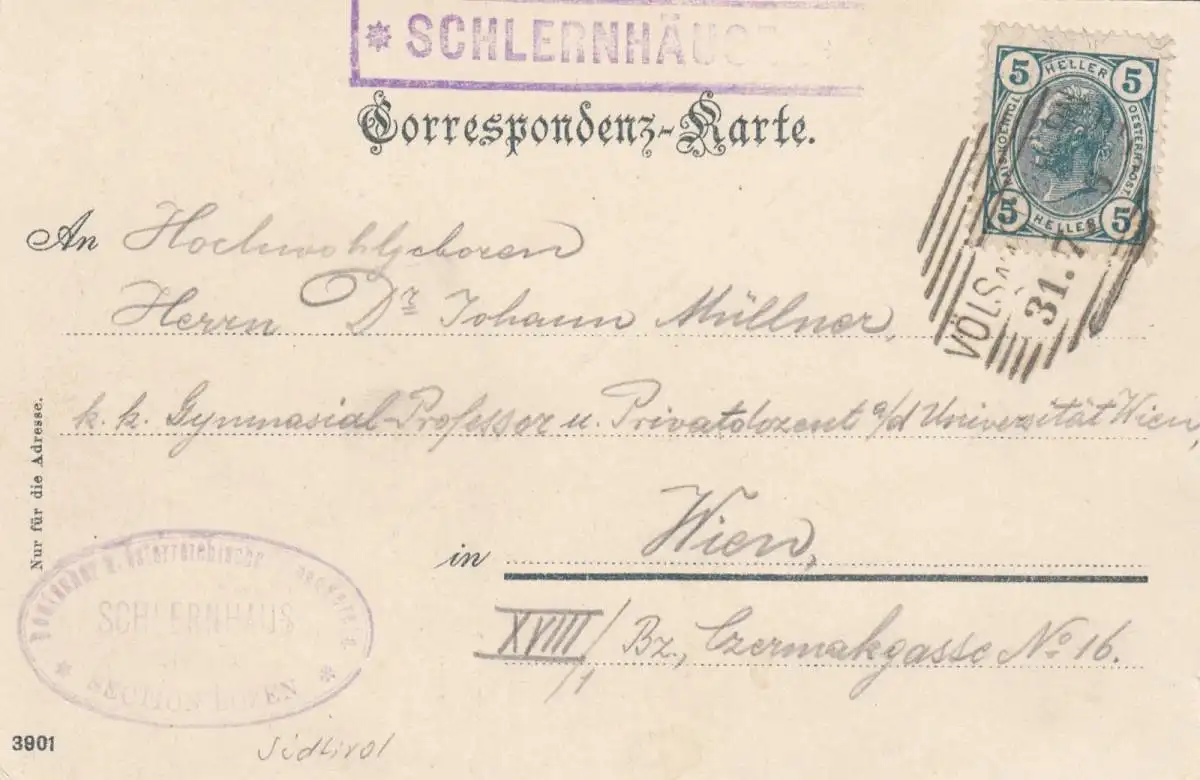 * SCHLERNHÄUS
Correspondenz-Karte.
5 HELLER 5
KAIS. KOENIGL. OESTERR. POST.
5 HELLER 5
VÖLS
31. 7
An Hochwohlgeboren
Herrn Dr. Johann Müllner,
k. k. Gymnasial-Professor u. Privatdozent a/d Universität Wien,
in Wien,
XVIII/1 Bz., Czermakgasse No 16.
Nur für die Adresse.
u. Österreichische
SCHLERNHAUS
* SECTION BOZEN *
3901
Südtirol